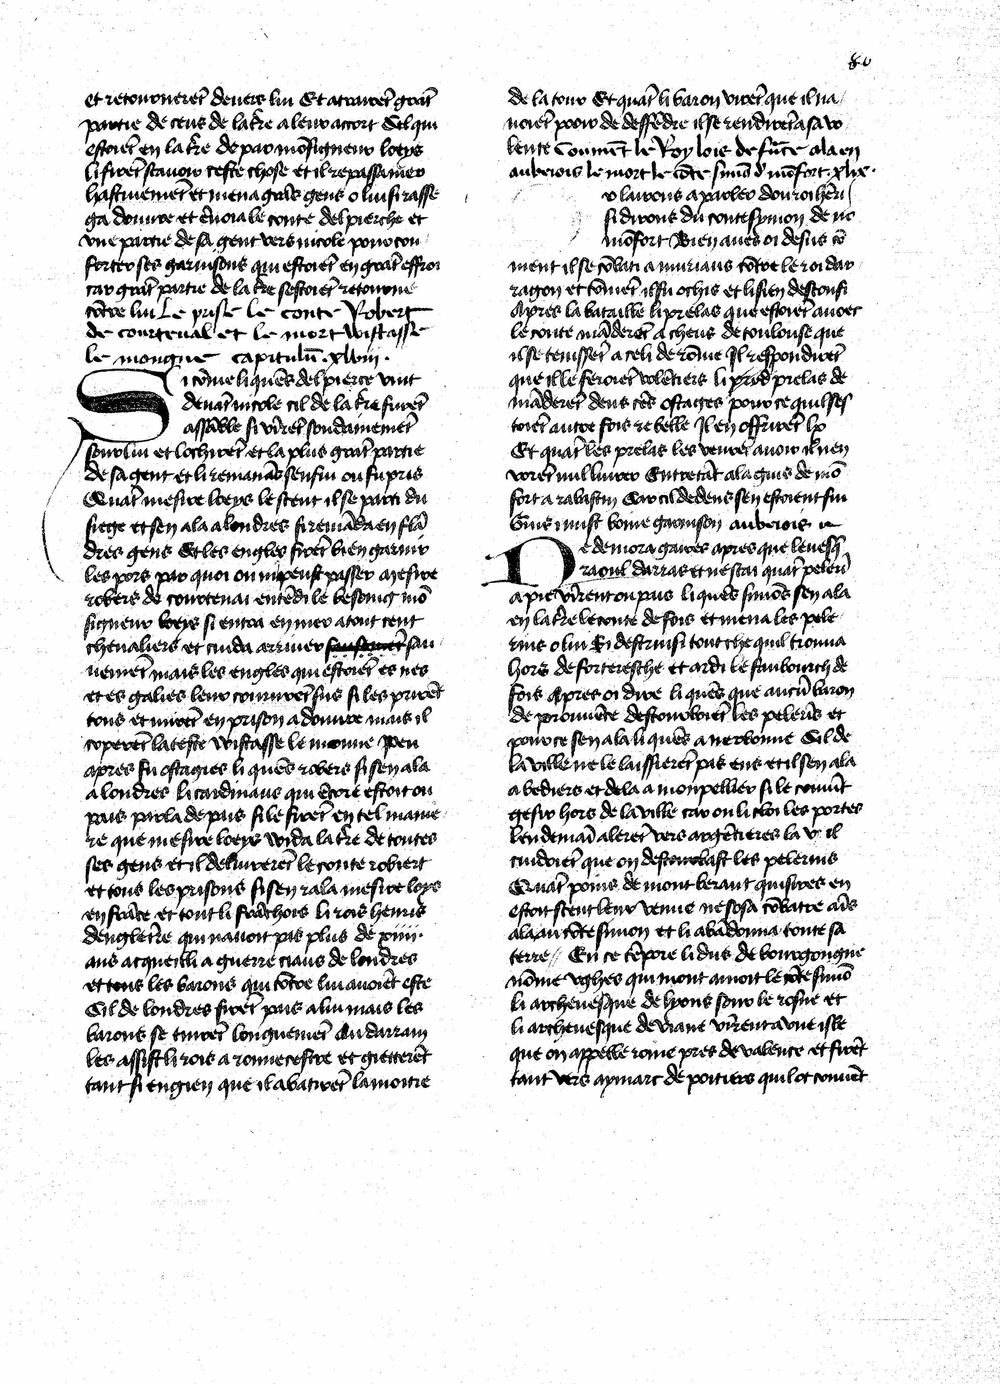 80
et retournerēt devers lui Et atrairēt grāt
partie de ceus de la tr̄e a leur acort Cil qui
estoiēt en la tr̄e de par mōsigneur loeys
li firēt scavoir ceste chose et il repassa mer
hastivemēt et mena grās gens o lui si rasse
ga douvre et ēvoia le conte del pierche et
une partie de sa gent vers nicole pour con
forter ses garnisons qui estoiēt en grāt effroi
car grāt partie de la tr̄e sestoiēt retourne
cōtre lui Le prise le conte Robert
de courtenal et le mort wistasse
le mongne capitulū .xlviij.
Si cōme li quēs del pierce vint
devāt nicole cil de la tr̄e furēt
assāble si vīrēt soudainemēt
sour lui et lochirēt et la plus grāt partie
de sa gent et li remanās senfui ou fu pris
Quāt mesire loeys le scent il se parti du
siege et sen ala a londres si remāda en flā
dres gens Et les engles firēt bien garnir
les pors par quoi on ni peust passer mesire
robers de courtenai entēdi le besoing mō
signeur loeys si entra en mer a tout cent
chevaliers et cuida arriver sau
vemēt mais les engles qui estoiēt es nes
et es galies leur coururēt sus si les prirēt
tous et mirēt en prison a douvre mais il
coperēt la teste wistasse le moine Peu
apres fu ostagies li quēs robers si sen ala
a londres li cardinaus qui ēcore estoit ou
pais parla de pais si le firēt en tel manie
re que mesire loeys wida la tr̄e de toutes
ses gens et il delivrerēt le conte robiert
et tous les prisons si sen rala mesire loys
en frāce et tout li frāchois li rois henris
dengletr̄e qui navoit pas plus de xiiij.
ans acqueilli a guerre ciaus de londres
et tous les barons qui cōtre lui avoiēt este
Cil de londres firēt pais a lui mais les
barons se tinrēt longuemēt Au darrain
les assist li rois a rouvecestre et gietterēt
tant si engien que il abatirēt la moitie
de la tour Et quāt li baron virēt que il na
voiēt pooir de deffēdre il se rendirēt a sa vo
lente Coumēt le Roy lois de frāce ala en
aubegois le mort le cōte simō d mōfort .xlix.
v laurons a parler dou roi hēri
si dirons du conte symon de mo
mōfort Bien aves oi desus cō
ment il se cōbati a muriaus cōtre le roi dar
ragon et cōmēt il fu ochis et li sien desconfi
Apres la bataille li prelas que estoiēt avoec
le conte māderēt a cheus de toulouse que
il se tenissēt a celi de rōme Il respondirēt
que il le feroiēt volētiers li prelas de
māderēt deus cēs ostages pour ce quil ses
toiēt autre fois rebelle Il en offrirēt lx
Et quāt les prelas les veurēt avoir il nen
vorēt nul livrer Entretāt ala guis de mō
fort a rabastin Car cil dedens sen estoient fui
Guis i mist boine garnison aubegois
Ne demora gaires apres que levesq̄
raoul darras et ne scai quāt pelerī
a pie vīrent ou pais li quēs simōs sen ala
en la tr̄e le conte de fois et mena les pele
rins o lui Si destruisi tout che quil trouva
hors de forteresche et ardi le faubourch de
fois Apres oi dire li quēs que aucū baron
de prouvēce destourboiēt les pelerīs et
pour ce sen ala li quēs a nerbonne Cil de
la ville ne le laissierēt pas ens et il sen ala
a bediers et de la a monpellier si le couvīt
gesir hors de la ville car on li cloi les portes
lendemaī alerēt vers argētieres la v il
cuidoiēt que on destourbast les pelerins
Quāt poins de mont beraut qui sires en
estoit scent leur venue ne sosa cōbatre ains
ala au cōte simon et li abādonna toute sa
terre En ce tēpore li dus de bourgongne
nōme vghes qui mout amoit le cōte simō
li archevesque de lyons sour le rosne et
li archevesque de viane vīrent a une isle
que on appelle rome pres de valence et firēt
tant vers aymart de poitiers qui lot couvēt